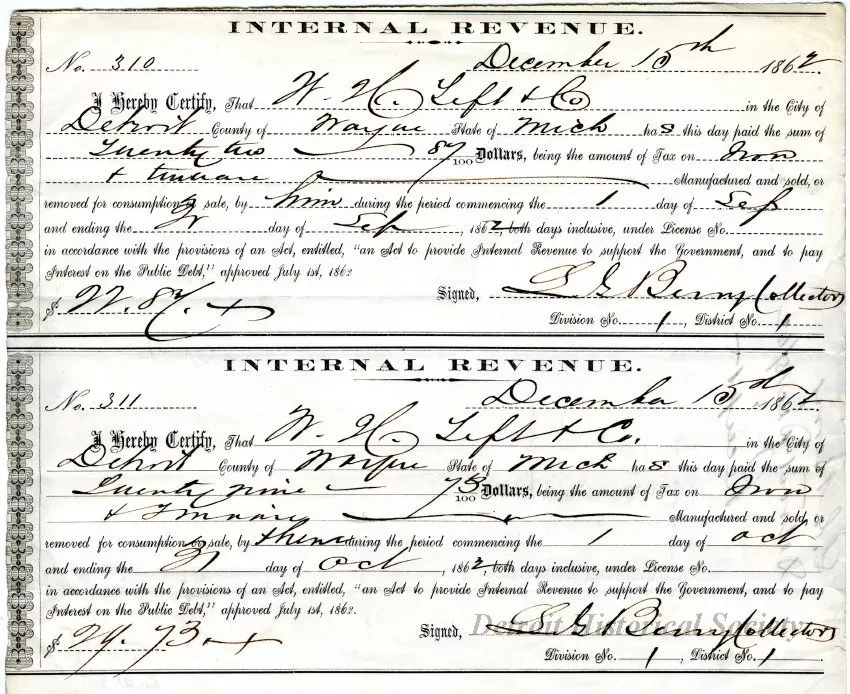 INTERNAL REVENUE.
No. 310 December 15th 1862.
I Hereby Certify, That W. H. Teft & Co in the City of
Detroit County of Wayne State of Mich has this day paid the sum of
Twenty two 87/100 Dollars, being the amount of Tax on Iron
& tinware Manufactured and sold, or
removed for consumption or sale, by him during the period commencing the 1 day of Sep
and ending the day of Sep, 1862, both days inclusive, under License No.
in accordance with the provisions of an Act, entitled, "an Act to provide Internal Revenue to support the Government, and to pay
Interest on the Public Debt," approved July 1st, 1862
$ 22.87. Signed, Berry Collector
Division No. 1, District No. 1
INTERNAL REVENUE.
No. 311 December 15th 1862
I Hereby Certify, That W. H. Teft & Co. in the City of
Detroit County of Wayne State of Mich has this day paid the sum of
Twenty nine 73/100 Dollars, being the amount of Tax on Iron
& Tinware Manufactured and sold, or
removed for consumption or sale, by them during the period commencing the 1 day of Oct
and ending the day of Oct, 1862, both days inclusive, under License No.
in accordance with the provisions of an Act, entitled, "an Act to provide Internal Revenue to support the Government, and to pay
Interest on the Public Debt," approved July 1st, 1862.
$ 29.73 Signed, Berry Collector
Detroit Historical Society
Division No. 1, District No. 1